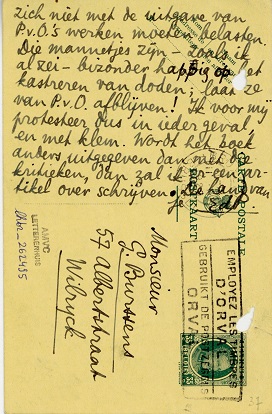 zich niet met de uitgave van
P.v.O.'s werken moeten belasten.
Die mannetjes zijn - zooals ik
al zei - bizonder happig op het
kastreren van doden; laat ze
van P.v.O. afblijven! Ik voor mij
protesteer dus in ieder geval,
en met klem. Wordt het boek
anders uitgegeven dan met de
kritieken, dan zal ik er een ar-
tikel over schrijven. Je hand van
CARTE POSTALE
POSTKAART
AMVC
LETTERENHUIS
Monsieur
G. Burssens
57 Albertstraat
Wilryck
EMPLOYEZ LES TIMBRES
D'ORVAL
GEBRUIKT DE POSTZEGELS
ORVAL
35
37